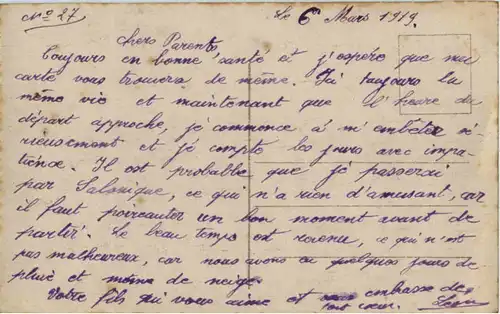 No 27
Le 6 Mars 1919.
Chers Parents,
Toujours en bonne santé et j'espère que ma
carte vous trouvera de même. J'ai toujours la
même vie et maintenant que l'heure du
départ approche, je commence à m'embêter sé-
rieusement et je compte les jours avec impa-
tience. Il est probable que je passerai
par Salonique, ce qui n'a rien d'amusant, car
il faut poireauter un bon moment avant de
partir. Le beau temps est revenu, ce qui n'est
pas malheureux, car nous avons eu quelques jours de
pluie et même de neige.
Votre fils qui vous aime et embrasse de
tout cœur.